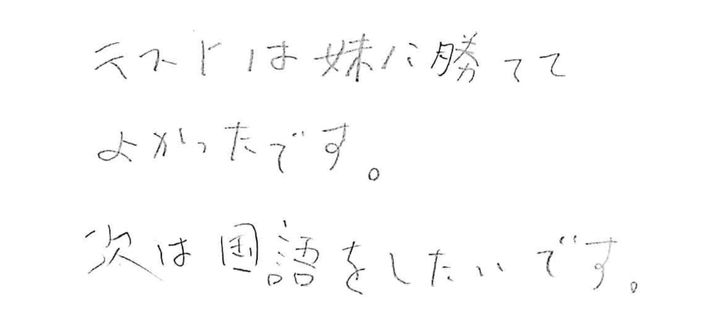 テストは妹に勝てて
よかったです。
次は国語をしたいです。